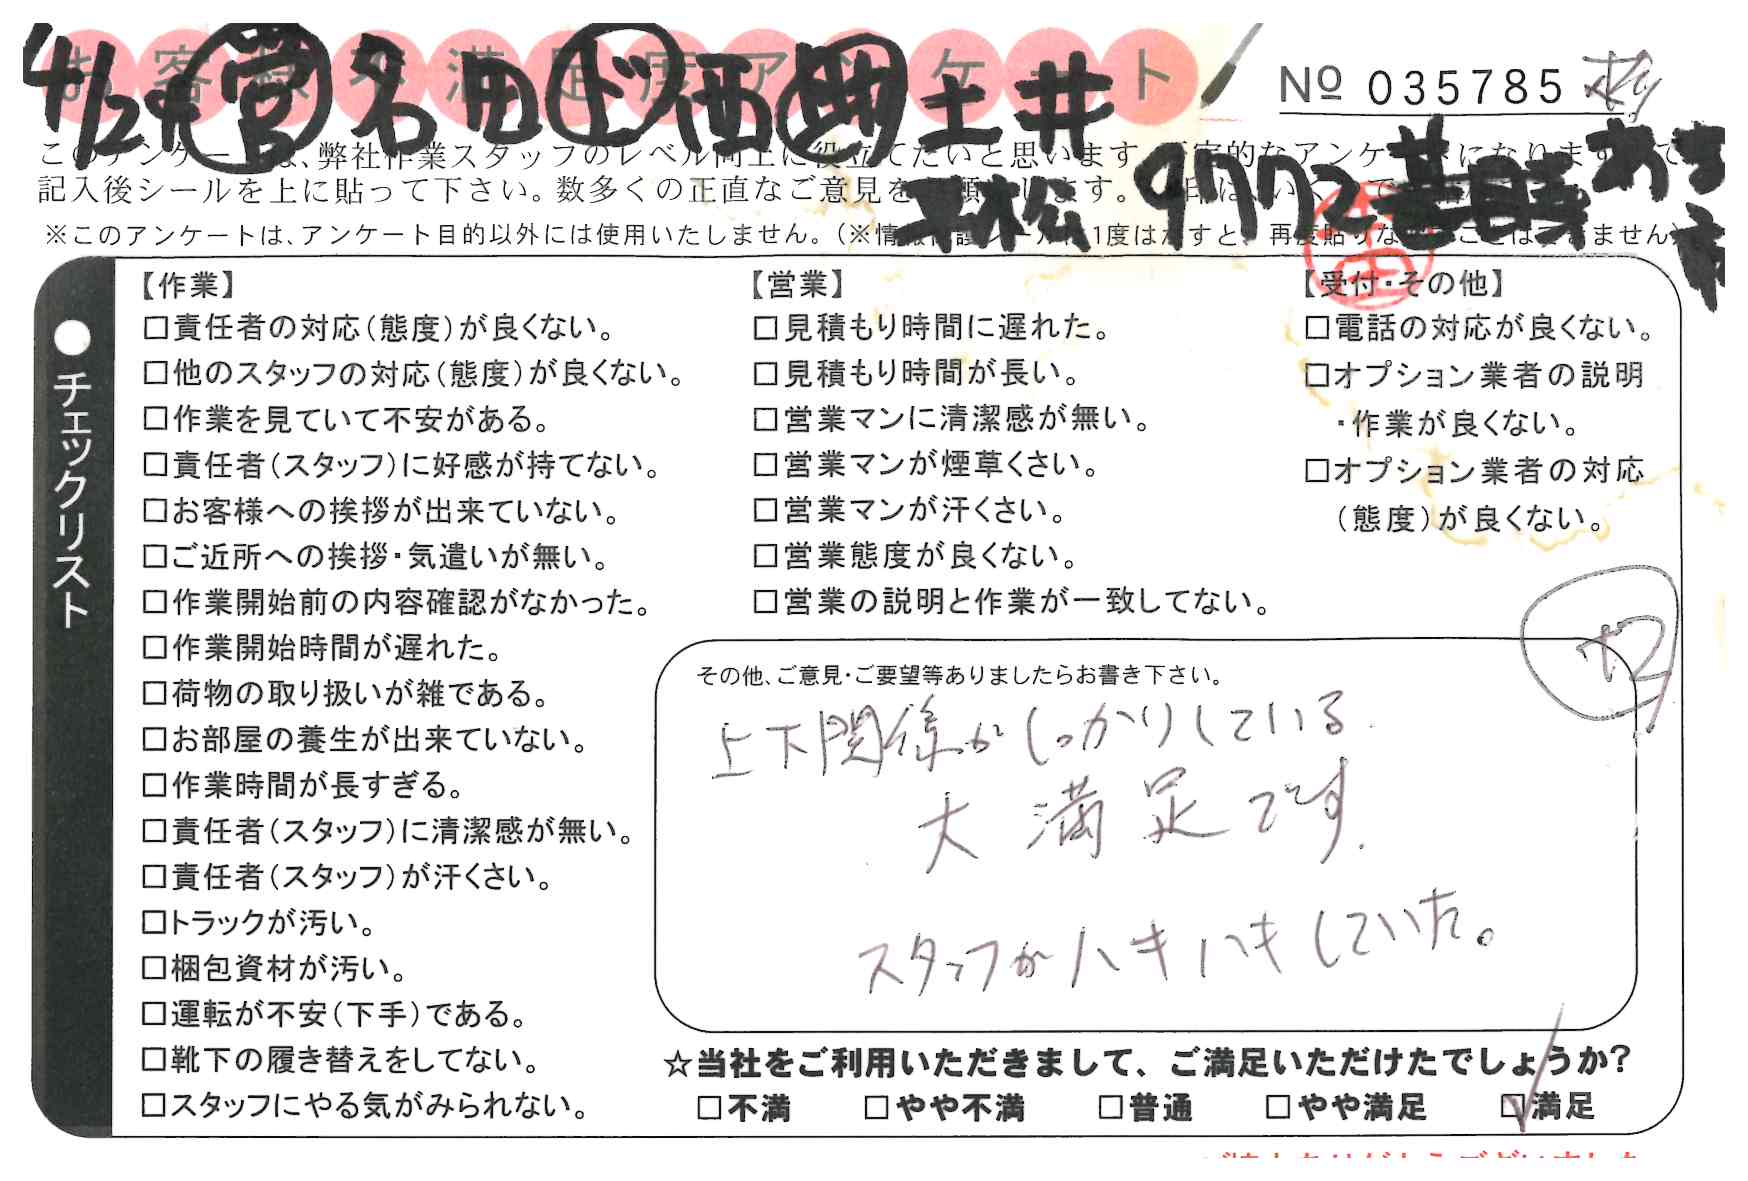 お客様不満足度アンケート
4/12 営 名田 ド 西 助 土井
No 035785
平松 9772
記入後シールを上に貼って下さい。数多くの正直なご意見を
※このアンケートは、アンケート目的以外には使用いたしません。
●チェックリスト
【作業】
□責任者の対応(態度)が良くない。
□他のスタッフの対応(態度)が良くない。
□作業を見ていて不安がある。
□責任者(スタッフ)に好感が持てない。
□お客様への挨拶が出来ていない。
□ご近所への挨拶・気遣いが無い。
□作業開始前の内容確認がなかった。
□作業開始時間が遅れた。
□荷物の取り扱いが雑である。
□お部屋の養生が出来ていない。
□作業時間が長すぎる。
□責任者(スタッフ)に清潔感が無い。
□責任者(スタッフ)が汗くさい。
□トラックが汚い。
□梱包資材が汚い。
□運転が不安(下手)である。
□靴下の履き替えをしてない。
□スタッフにやる気がみられない。
【営業】
□見積もり時間に遅れた。
□見積もり時間が長い。
□営業マンに清潔感が無い。
□営業マンが煙草くさい。
□営業マンが汗くさい。
□営業態度が良くない。
□営業の説明と作業が一致してない。
【受付・その他】
□電話の対応が良くない。
□オプション業者の説明
・作業が良くない。
□オプション業者の対応
(態度)が良くない。
その他、ご意見・ご要望等ありましたらお書き下さい。
上下関係がしっかりしている
大満足です。
スタッフがハキハキしていた。
☆当社をご利用いただきまして、ご満足いただけたでしょうか?
□不満 □やや不満 □普通 □やや満足 ☑満足